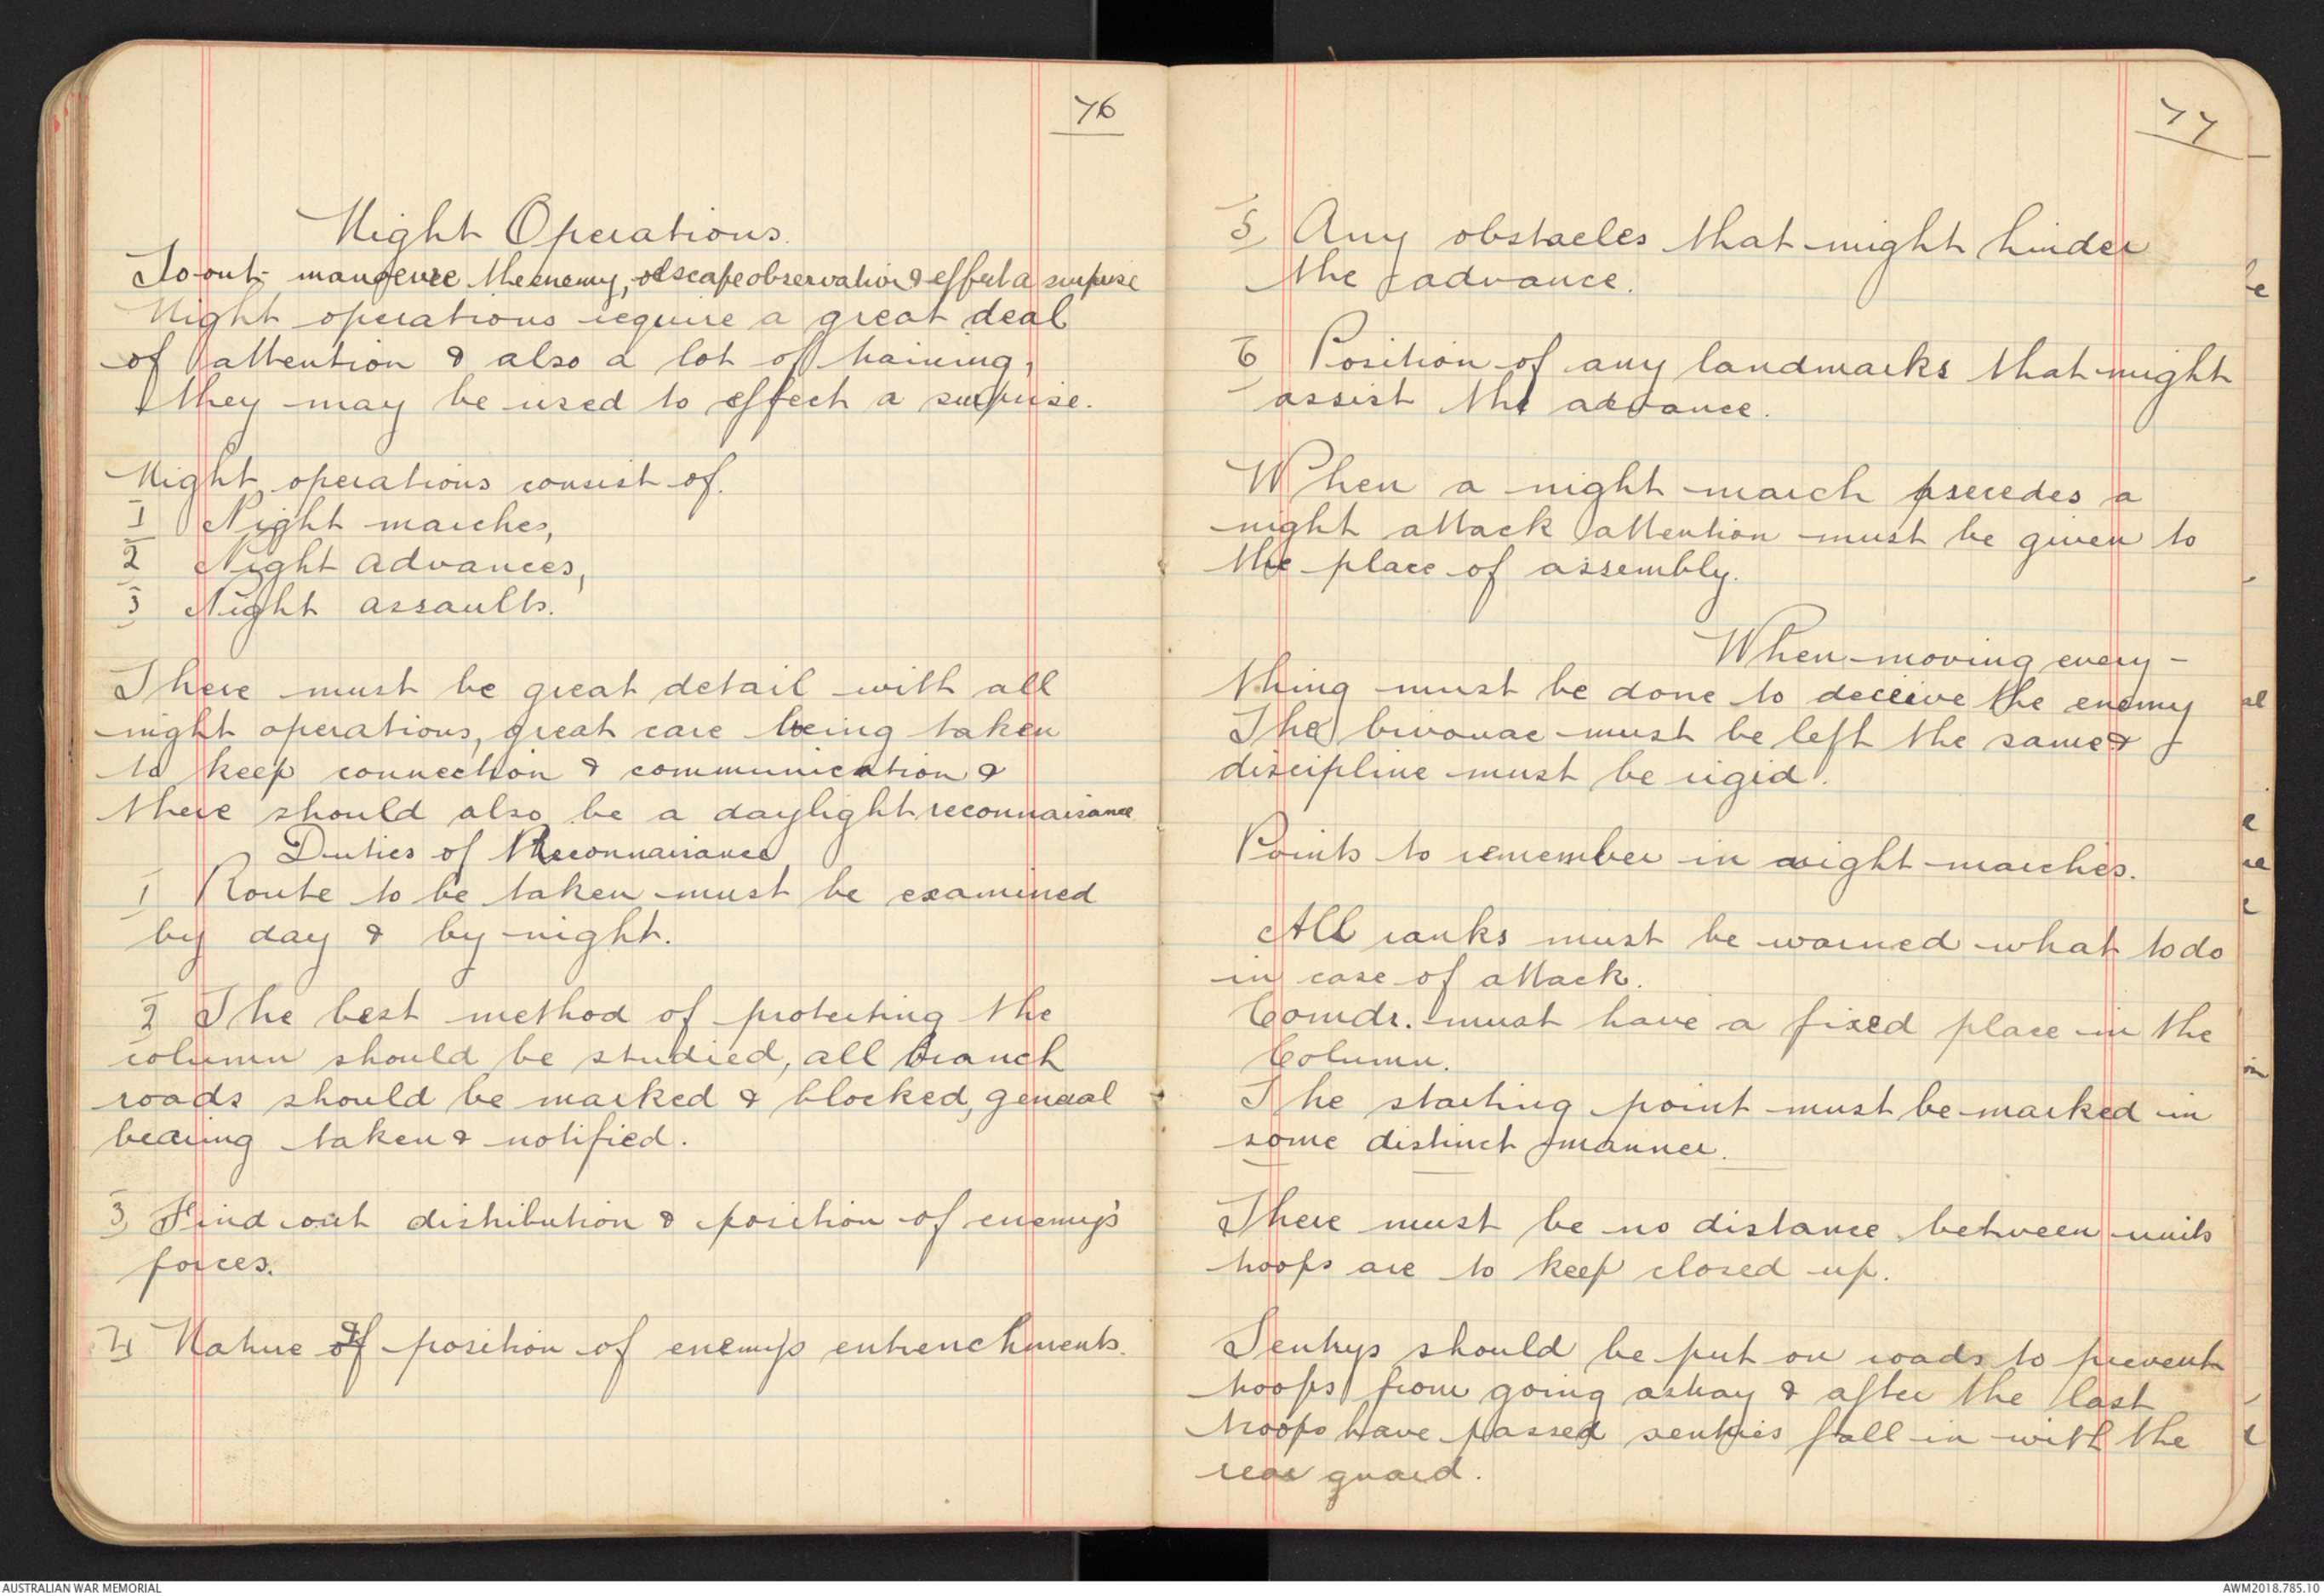 76
Night Operations.
To out manoevre the enemy, escape observation & effect a surprise
Night operations require a great deal
of attention & also a lot of training,
they may be used to effect a surprise.
Night operations consist of.
1 Night marches,
2 Night advances,
3 Night assaults.
There must be great detail with all
night operations, great care being taken
to keep connection & communication &
there should also be a daylight reconnaisance
Duties of Reconnaisance
1 Route to be taken must be examined
by day & by night.
2 The best method of protecting the
column should be studied, all branch
roads should be marked & blocked, general
bearing taken & notified.
3 Find out distribution & position of enemy's
forces.
4 Nature & position of enemy's entrenchments.
77
5 Any obstacles that might hinder
the advance.
6 Position of any landmarks that might
assist the advance.
When a night march precedes a
night attack attention must be given to
the place of assembly.
When moving every-
thing must be done to deceive the enemy
The bivouac must be left the same &
discipline must be rigid.
Points to remember in night marches.
All ranks must be warned what to do
in case of attack.
Comdr. must have a fixed place in the
Column.
The starting point must be marked in
some distinct manner.
There must be no distance between units
troops are to keep closed up.
Sentrys should be put on roads to prevent
troops from going astray & after the last
troops have passed sentries fall in with the
rear guard.
AUSTRALIAN WAR MEMORIAL
AWM2018.785.10